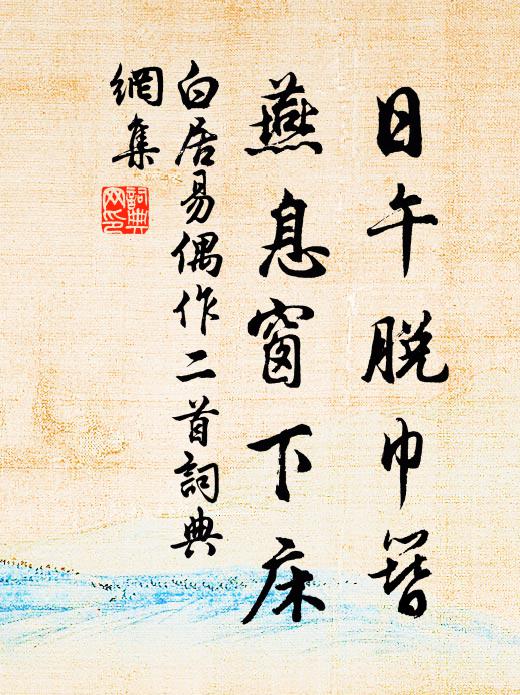 日午脱巾簪
燕息窗下床
白居易偶作二首詞典
網集
詞典
网印